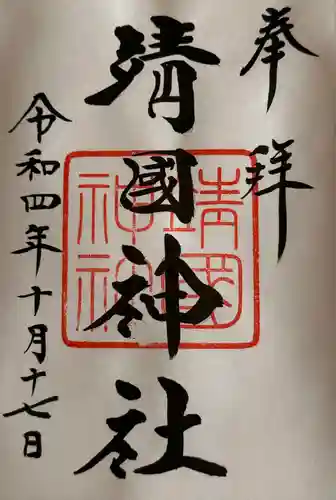 奉拝
靖國神社
靖國
神社
令和四年十月十七日